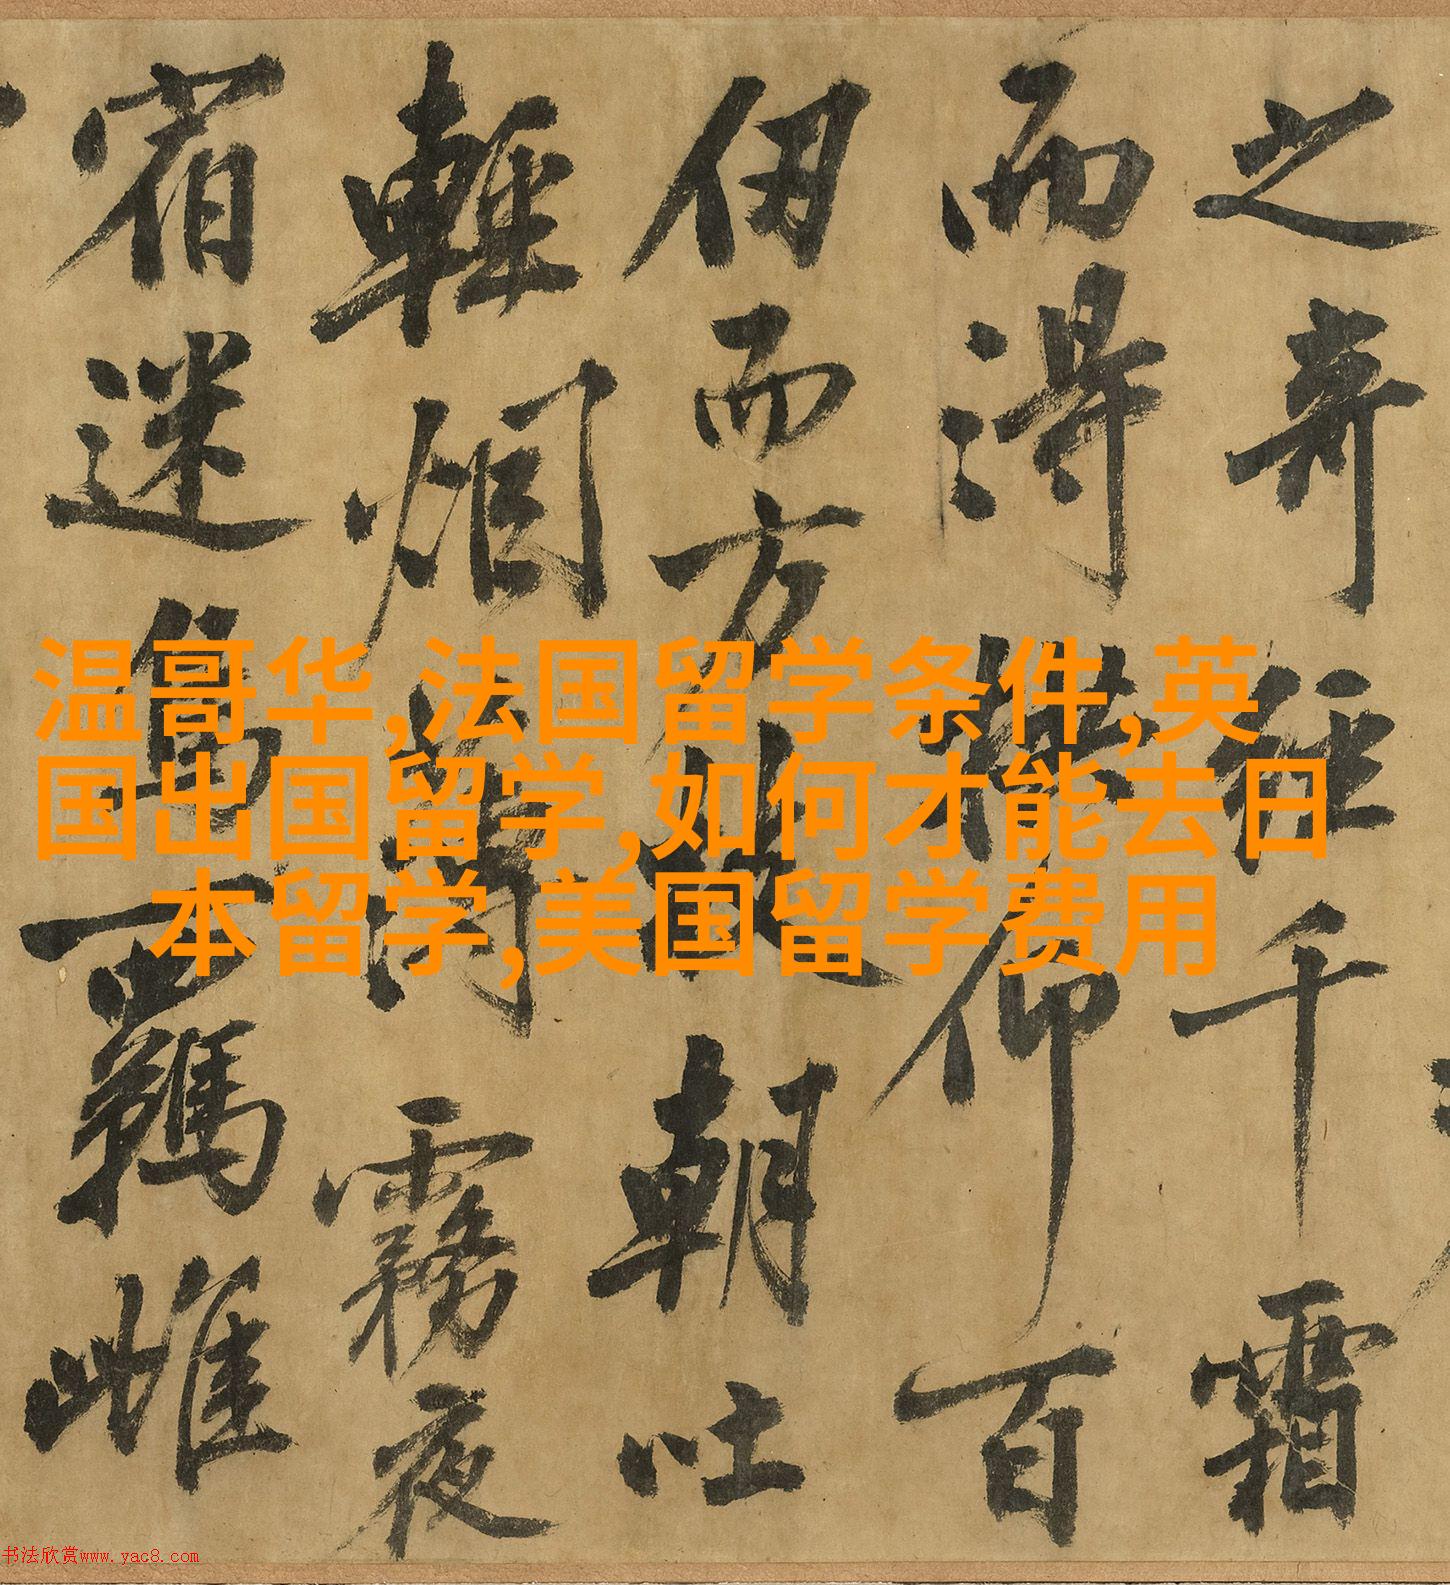 之奇徑千霜
而得拱仰百
仞而方枝朝吐
輕烟薄霧夜
宿迷鳥羈雌
温哥华,法国留学条件,英
国出国留学,如何才能去日
本留学,美国留学费用
书法欣赏www.yac8.com